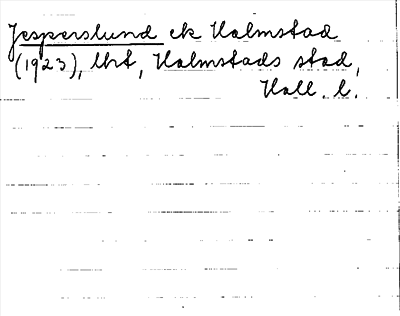 Jesperslund ek Halmstad
(1923), lht, Halmstads stad,
Hall. l.